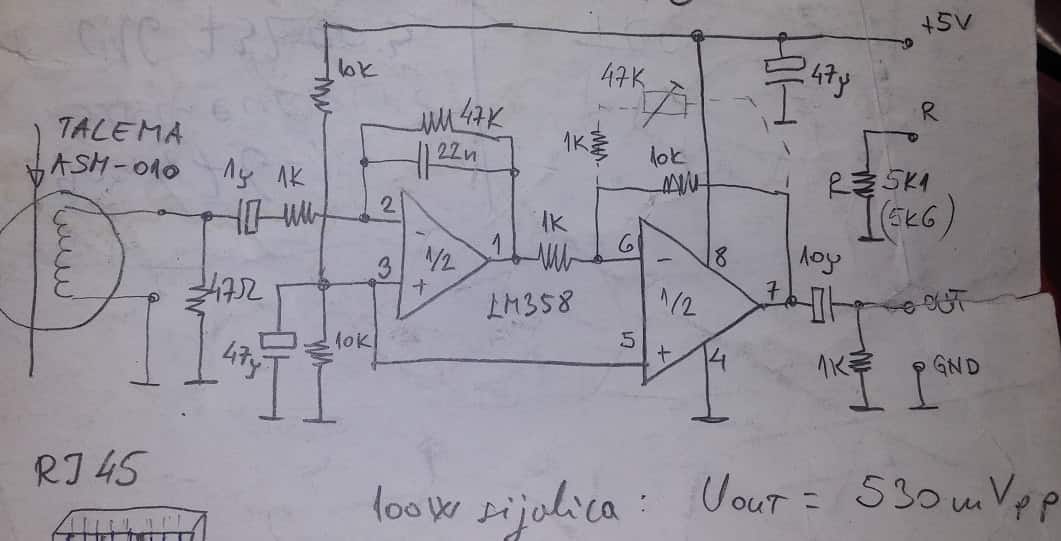 +5V
10K
47K
47µ
TALEMA
ASM-010
47K
22n
1K
10K
R
R 5K1
(5K6)
1µ
1K
2
-
1/2
+
3
1
1K
6
-
1/2
+
5
8
7
4
10µ
OUT
LM358
47Ω
47µ
10K
1K
GND
RJ45
100W sijalica: UOUT = 530mVpp